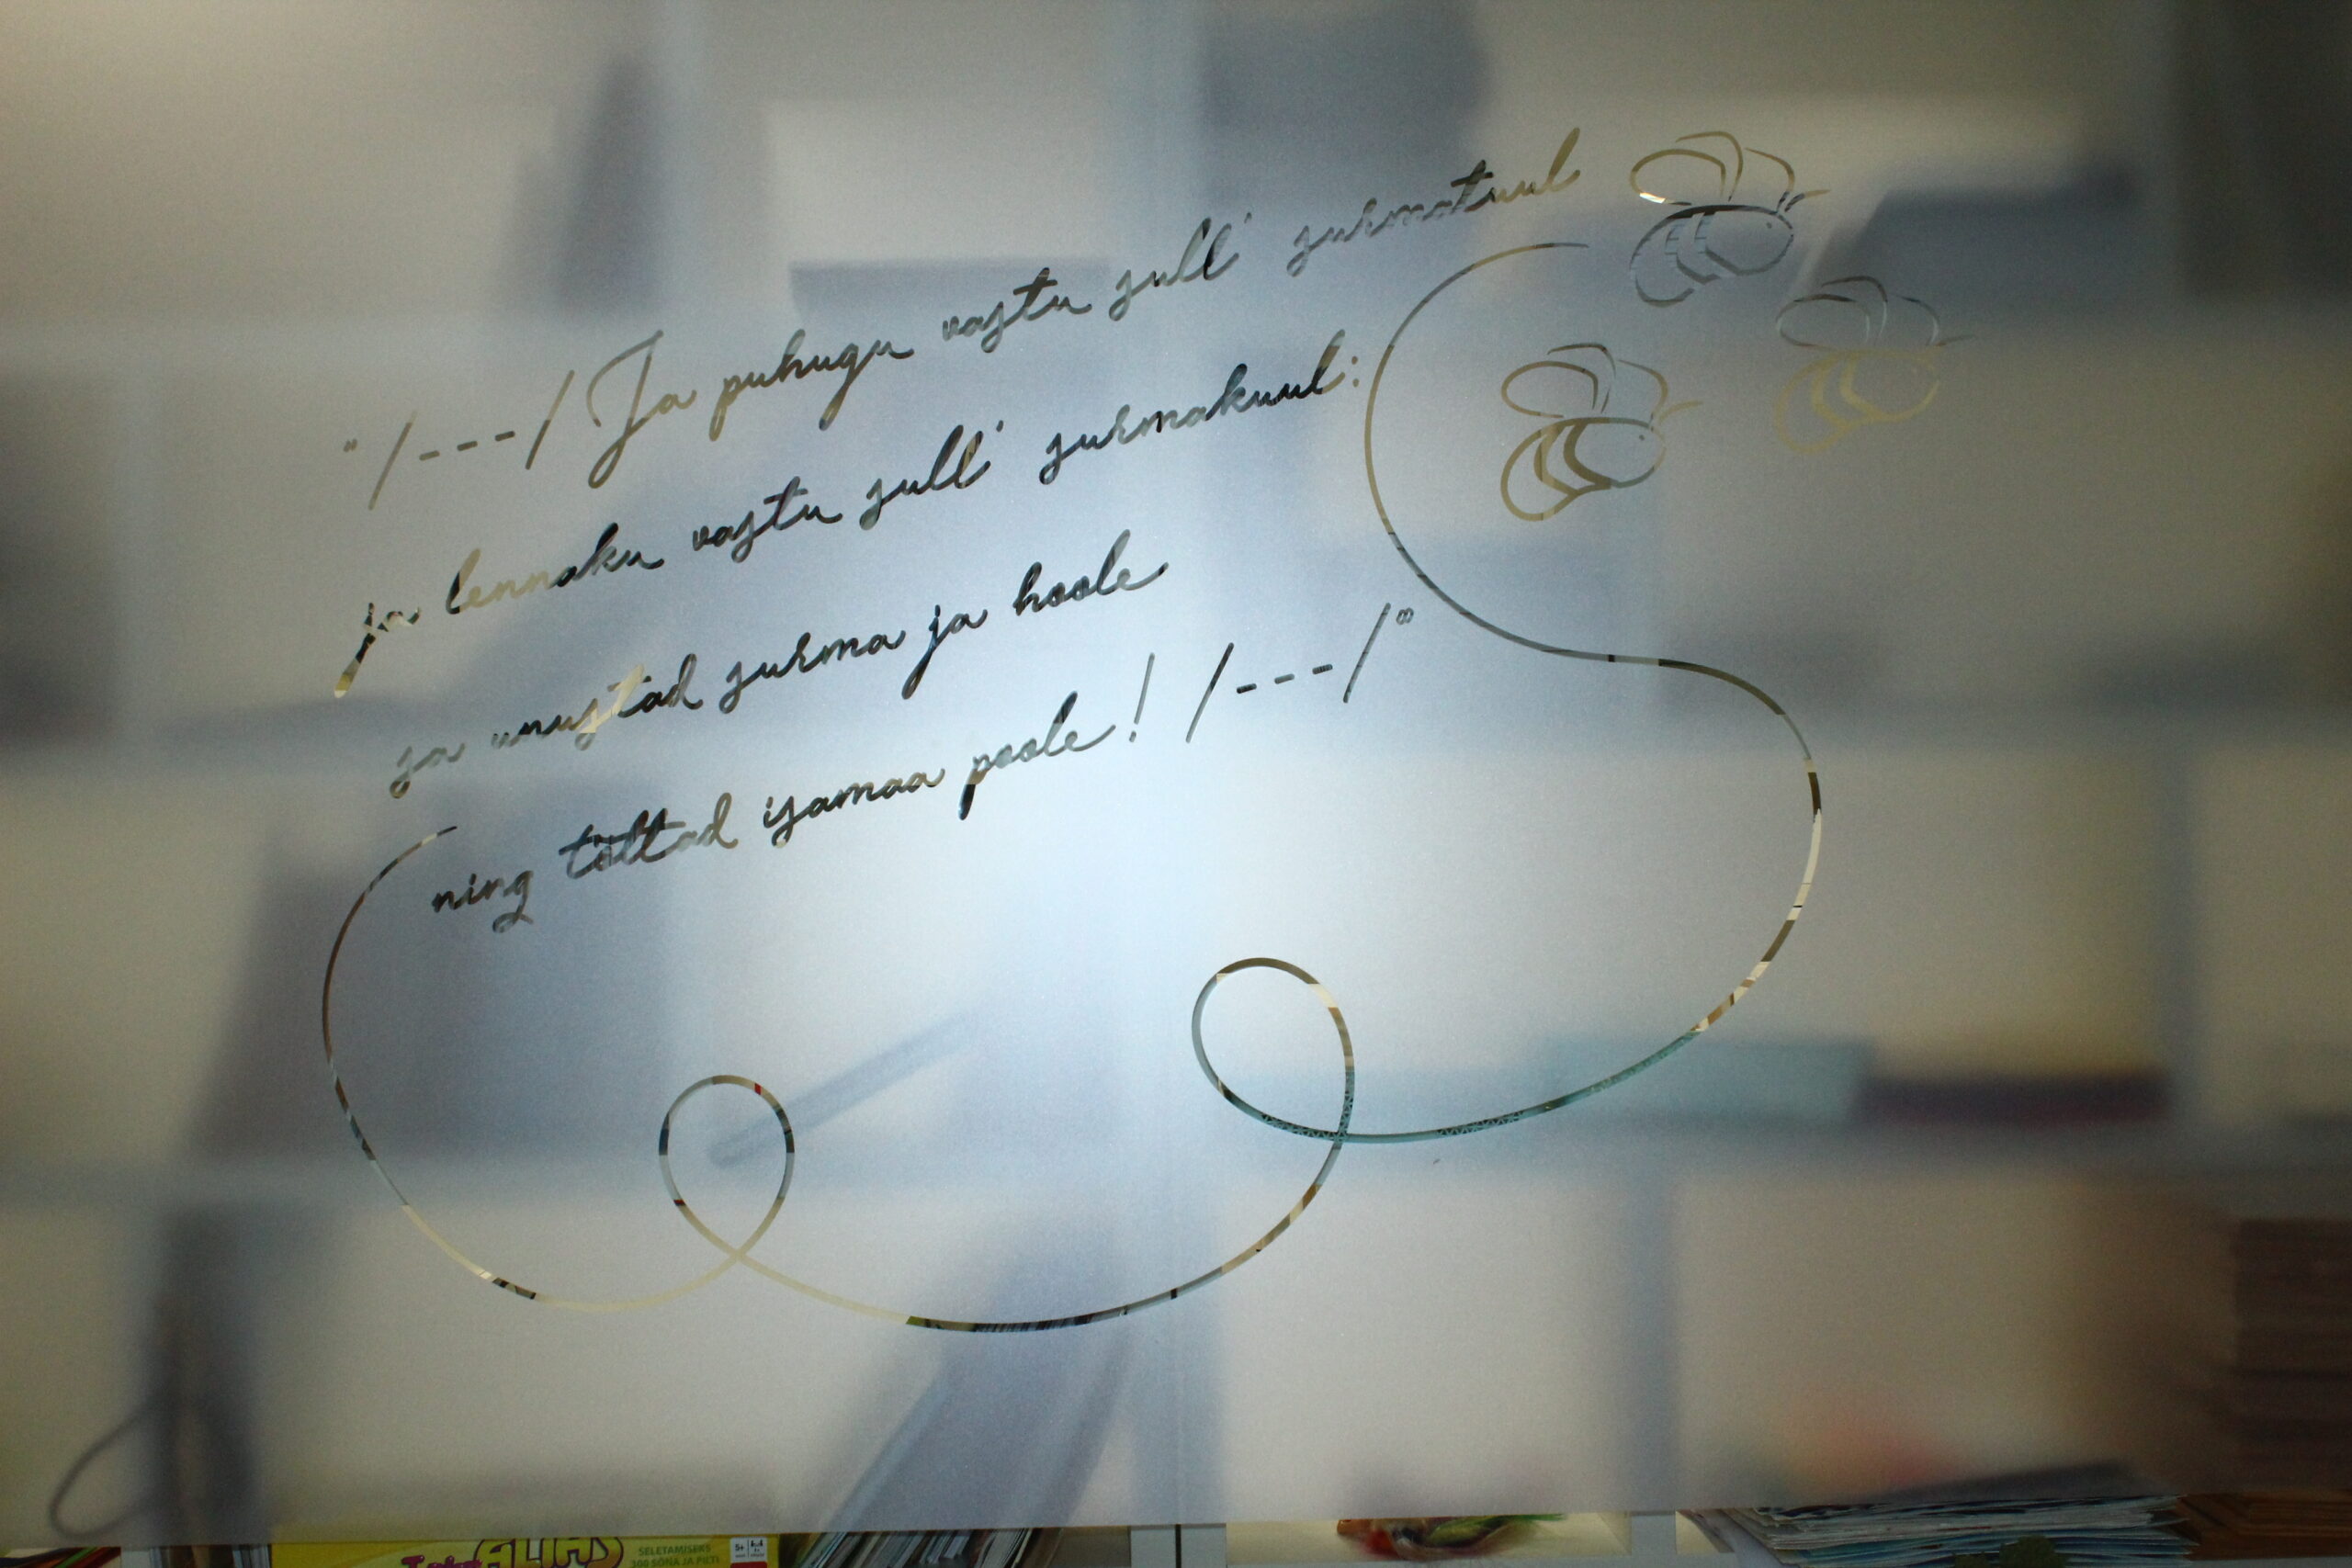 "/---/ Ja puhugu vastu sull' surmatuul
ja lennaku vastu sull' surmakuul:
sa unustad surma ja hoole
ning tõttad isamaa poole! /---/"
ALIAS
SELETAMISEKS
300 SÕNA JA PILTI
5+